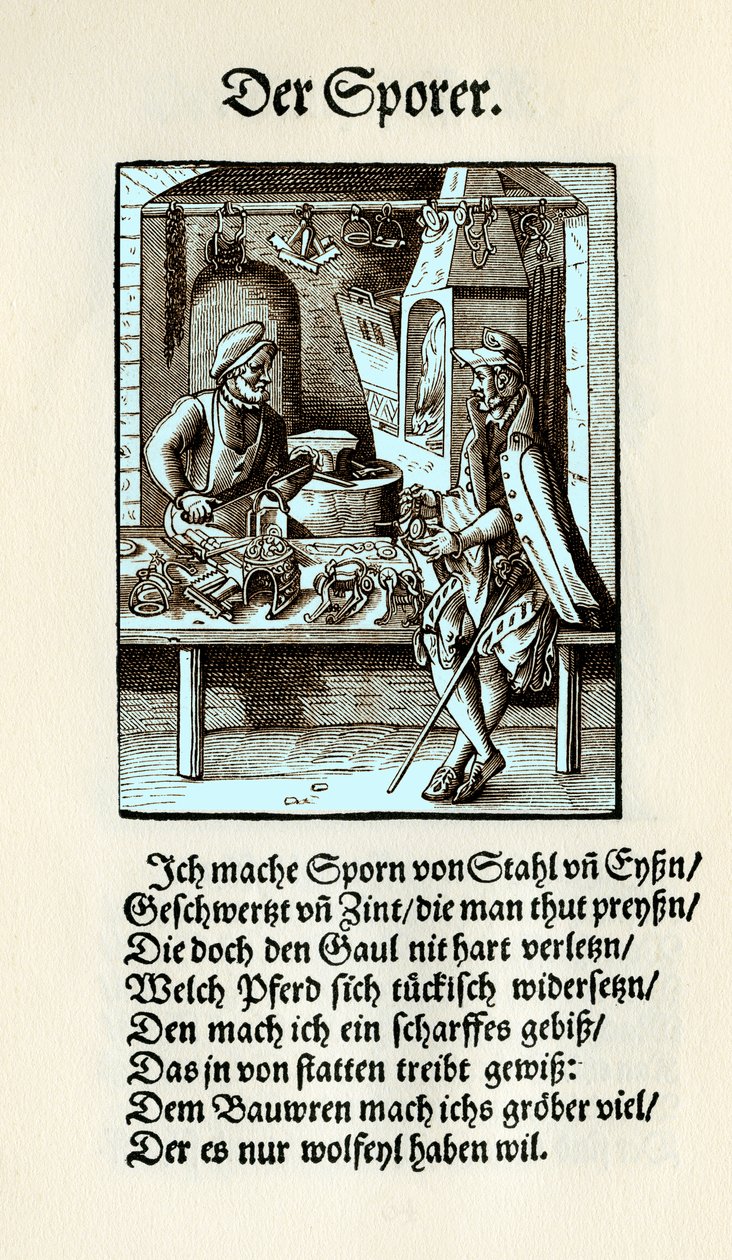 Der Sporer.
Ich mache Sporn von Stahl vñ Eyßn/
Geschwertzt vñ Zint/die man thut preyßn/
Die doch den Gaul nit hart verletzn/
Welch Pferd sich tuͤckisch widersetzn/
Den mach ich ein scharffes gebiß/
Das jn von statten treibt gewiß:
Dem Bauwren mach ichs groͤber viel/
Der es nur wolfeyl haben wil.